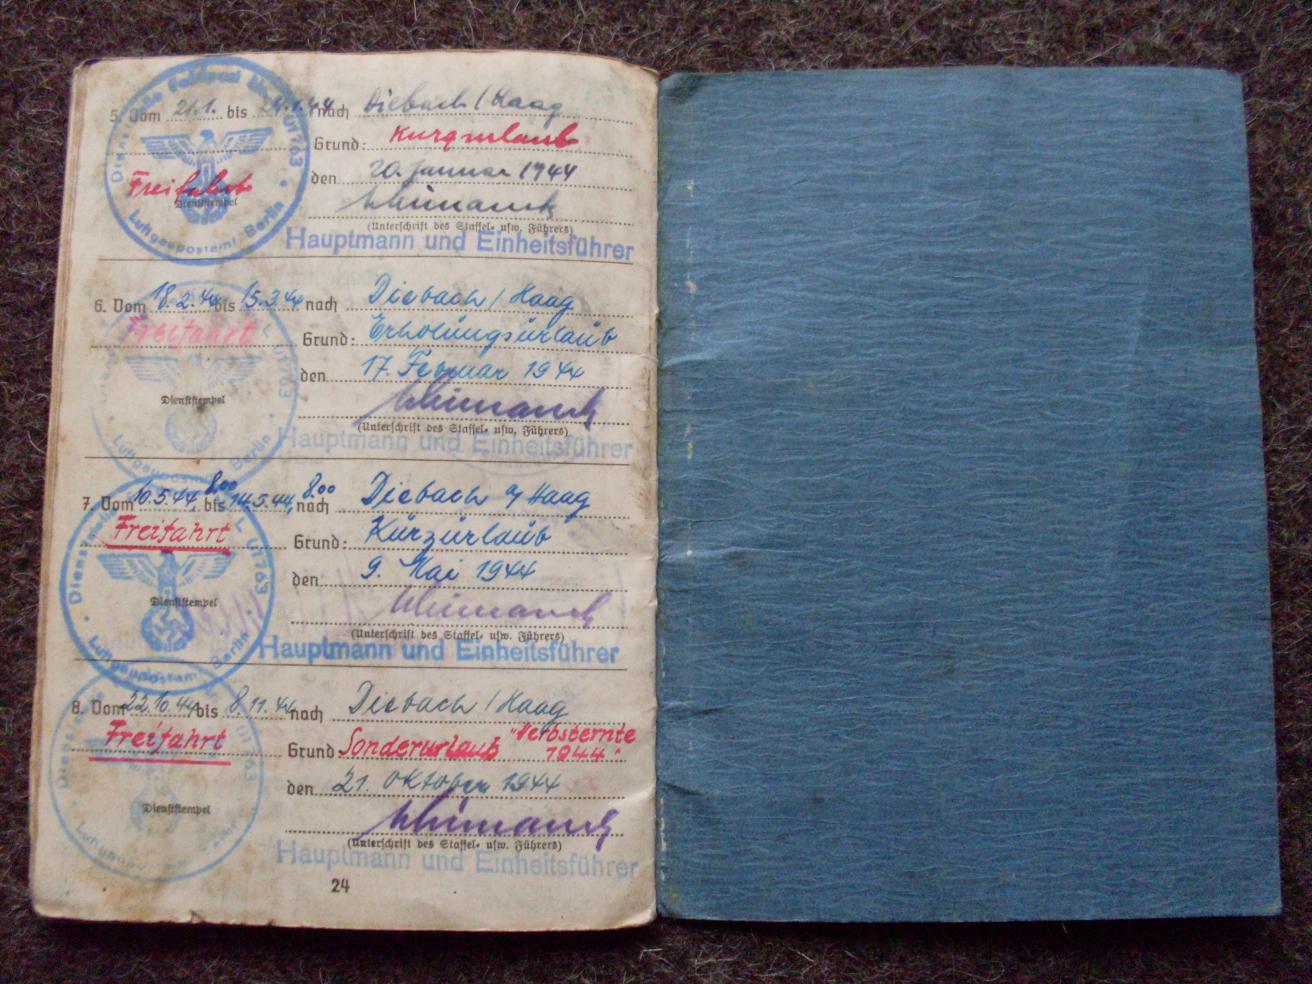 5. Vom 21.1. bis 24.1.44 nach Diebach / Haag
Grund: Kurzurlaub
den 20. Januar 1944
Freifahrt
Dienststempel
(Unterschrift des Staffel- usw. Führers)
Hauptmann und Einheitsführer
Dienststelle Feldpost
Luftgaupostamt Berlin
6. Vom 18.2.44 bis 15.3.44 nach Diebach / Haag
Freifahrt
Grund: Erholungsurlaub
den 17. Februar 1944
Dienststempel
(Unterschrift des Staffel- usw. Führers)
Hauptmann und Einheitsführer
Luftgaupostamt Berlin
7. Vom 10.5.44, 8.00 bis 14.5.44, 8.00 nach Diebach a/ Haag
Freifahrt
Grund: Kurzurlaub
den 9. Mai 1944
Dienststempel
(Unterschrift des Staffel- usw. Führers)
Hauptmann und Einheitsführer
Luftgaupostamt Berlin
8. Vom 22.10.44 bis 8.11.44 nach Diebach / Haag
Freifahrt
Grund Sonderurlaub "Herbsternte 1944"
den 21. Oktober 1944
Dienststempel
(Unterschrift des Staffel- usw. Führers)
Hauptmann und Einheitsführer
24